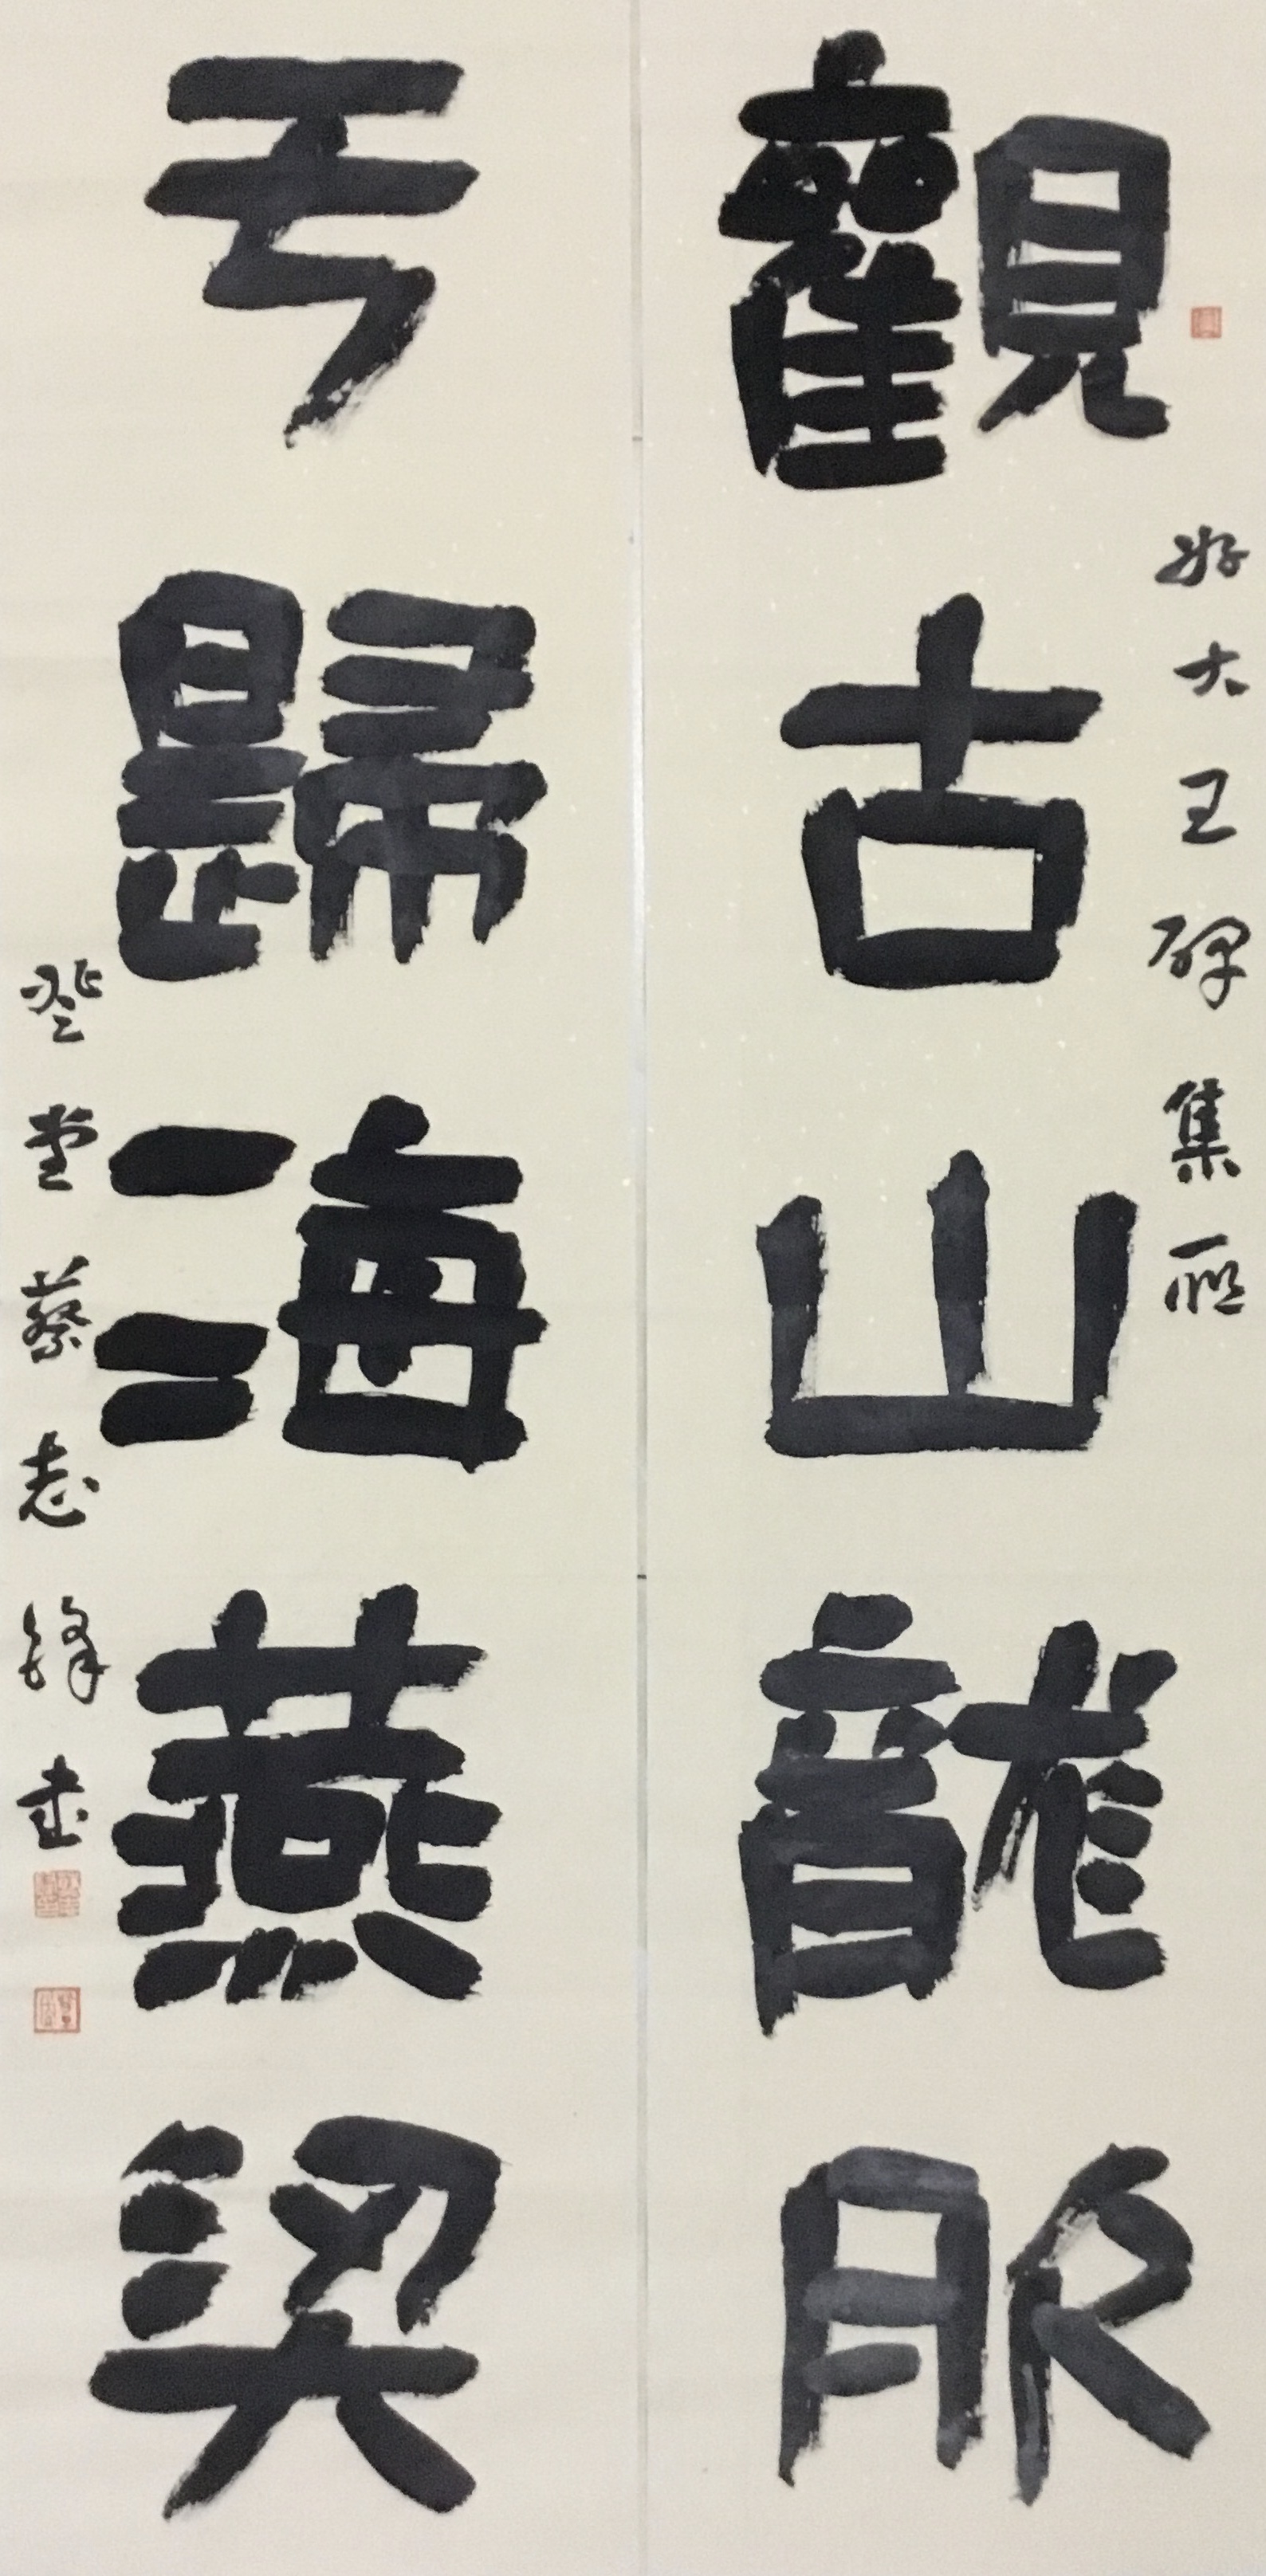 好大王碑集聯
觀古山龍服
于歸海燕梁
登堂蔡志鋒書